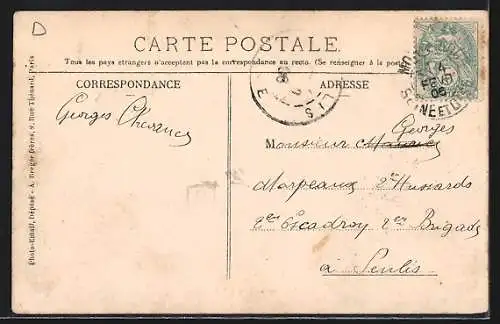 D
CARTE POSTALE.
Tous les pays etrangers n'acceptent pas la correspondance au recto. (Se renseigner à la poste
CORRESPONDANCE
ADRESSE
Georges
Georges
Monsieur Maurice
Marpeaux 2e Hussards
2em Escadron 2em Brigade
à Senlis
Photo-Émail, Déposé - A. Breger frères, 9, Rue Thénard, Paris
SEINE ET